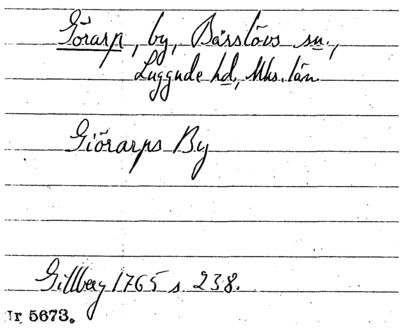 Görarp, by, Bårslövs sn.,
Luggude hd, Mhs. län.
Giörarps By
Gillberg 1765 s 238.
Nr 5673.